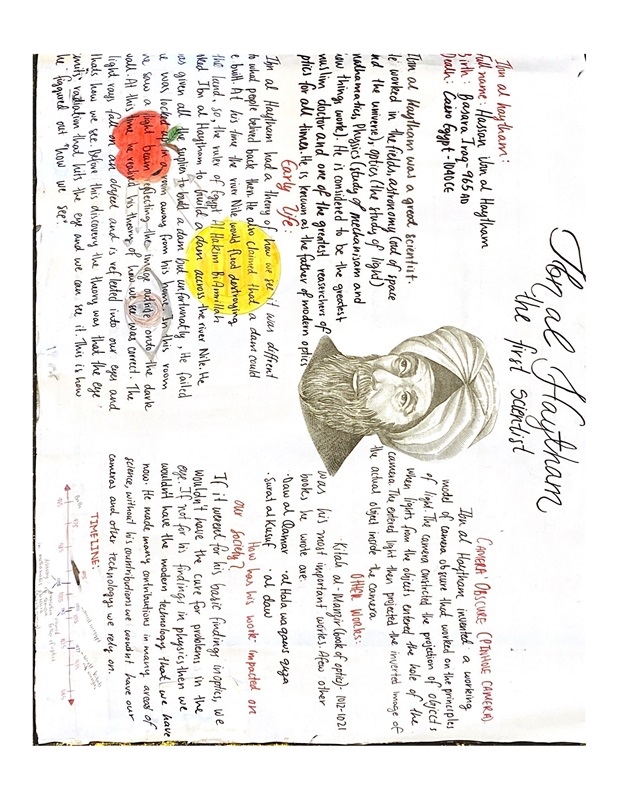 Ibn al Haytham
the first scientist
Ibn al haytham:
Full name: Hassan ibn al Haytham
Birth: Basara Iraq - 965 AD
Death: Cairo Egypt - 1040CE
Ibn al Haytham was a great scientist.
He worked in the fields, astronomy (out of space
and the universe), optics (the study of light)
mathematics, Physics (study of mechanisam and
how things work). He is considered to be the greatest
muslim doctor and one of the greatest reaserchers of
optics for all times. He is known as the father of modern optics
Early life:
Ibn al Haytham had a theory of how we see it was diffrent
to what people behind back then. He also claimed that a dam could
be built. At his time the river Nile would flood destroying
the land, so, the ruler of Egypt Al Hakim BiAmrillah
Ibn al Haytham to build a dam across the river Nile. He
was given all the suplies to build a dam but unfortunatly, he failed
he was locked up in a room away from his home. In this room
he saw a light beam reflecting the image outside onto the dark
wall. At this time he realized his theory of how we see was correct. The
light rays fall on an object and is reflected into our eyes and
thats how we see. Before this discovery the theory was that the eye
emits radiation that hits the eye and we can see it. This is how
he figgured out "how we see"
CAMERA OBSCURE (PINHOLE CAMERA)
Ibn al Haytham invented a working
model of camera obscure that worked on the principles
of light. The camera constricted the projection of objects
when light from the objects entered the hole of the
camera. The entered light then projected the inverted image of
the actual object inside the camera
OTHER WORKS:
Kitab al-Manzir (book of optics)- 1012-1021
was his most important works. A few other
books he wrote are:
·Daw al Qamar ·al Hala waqaws quza
·Surat al Kusuf ·al daw
How has his work impacted on
our society?
If it werend for his basic findings in optics, we
wouldn't have the cure for problems in the
eye. If not for his findings in physics then we
wouldn't have the modern technology that we have
now. He made many contributions in many areas of
science, without his countributions we wouldnt have our
cameras and other technologys we rely on.
TIMELINE: